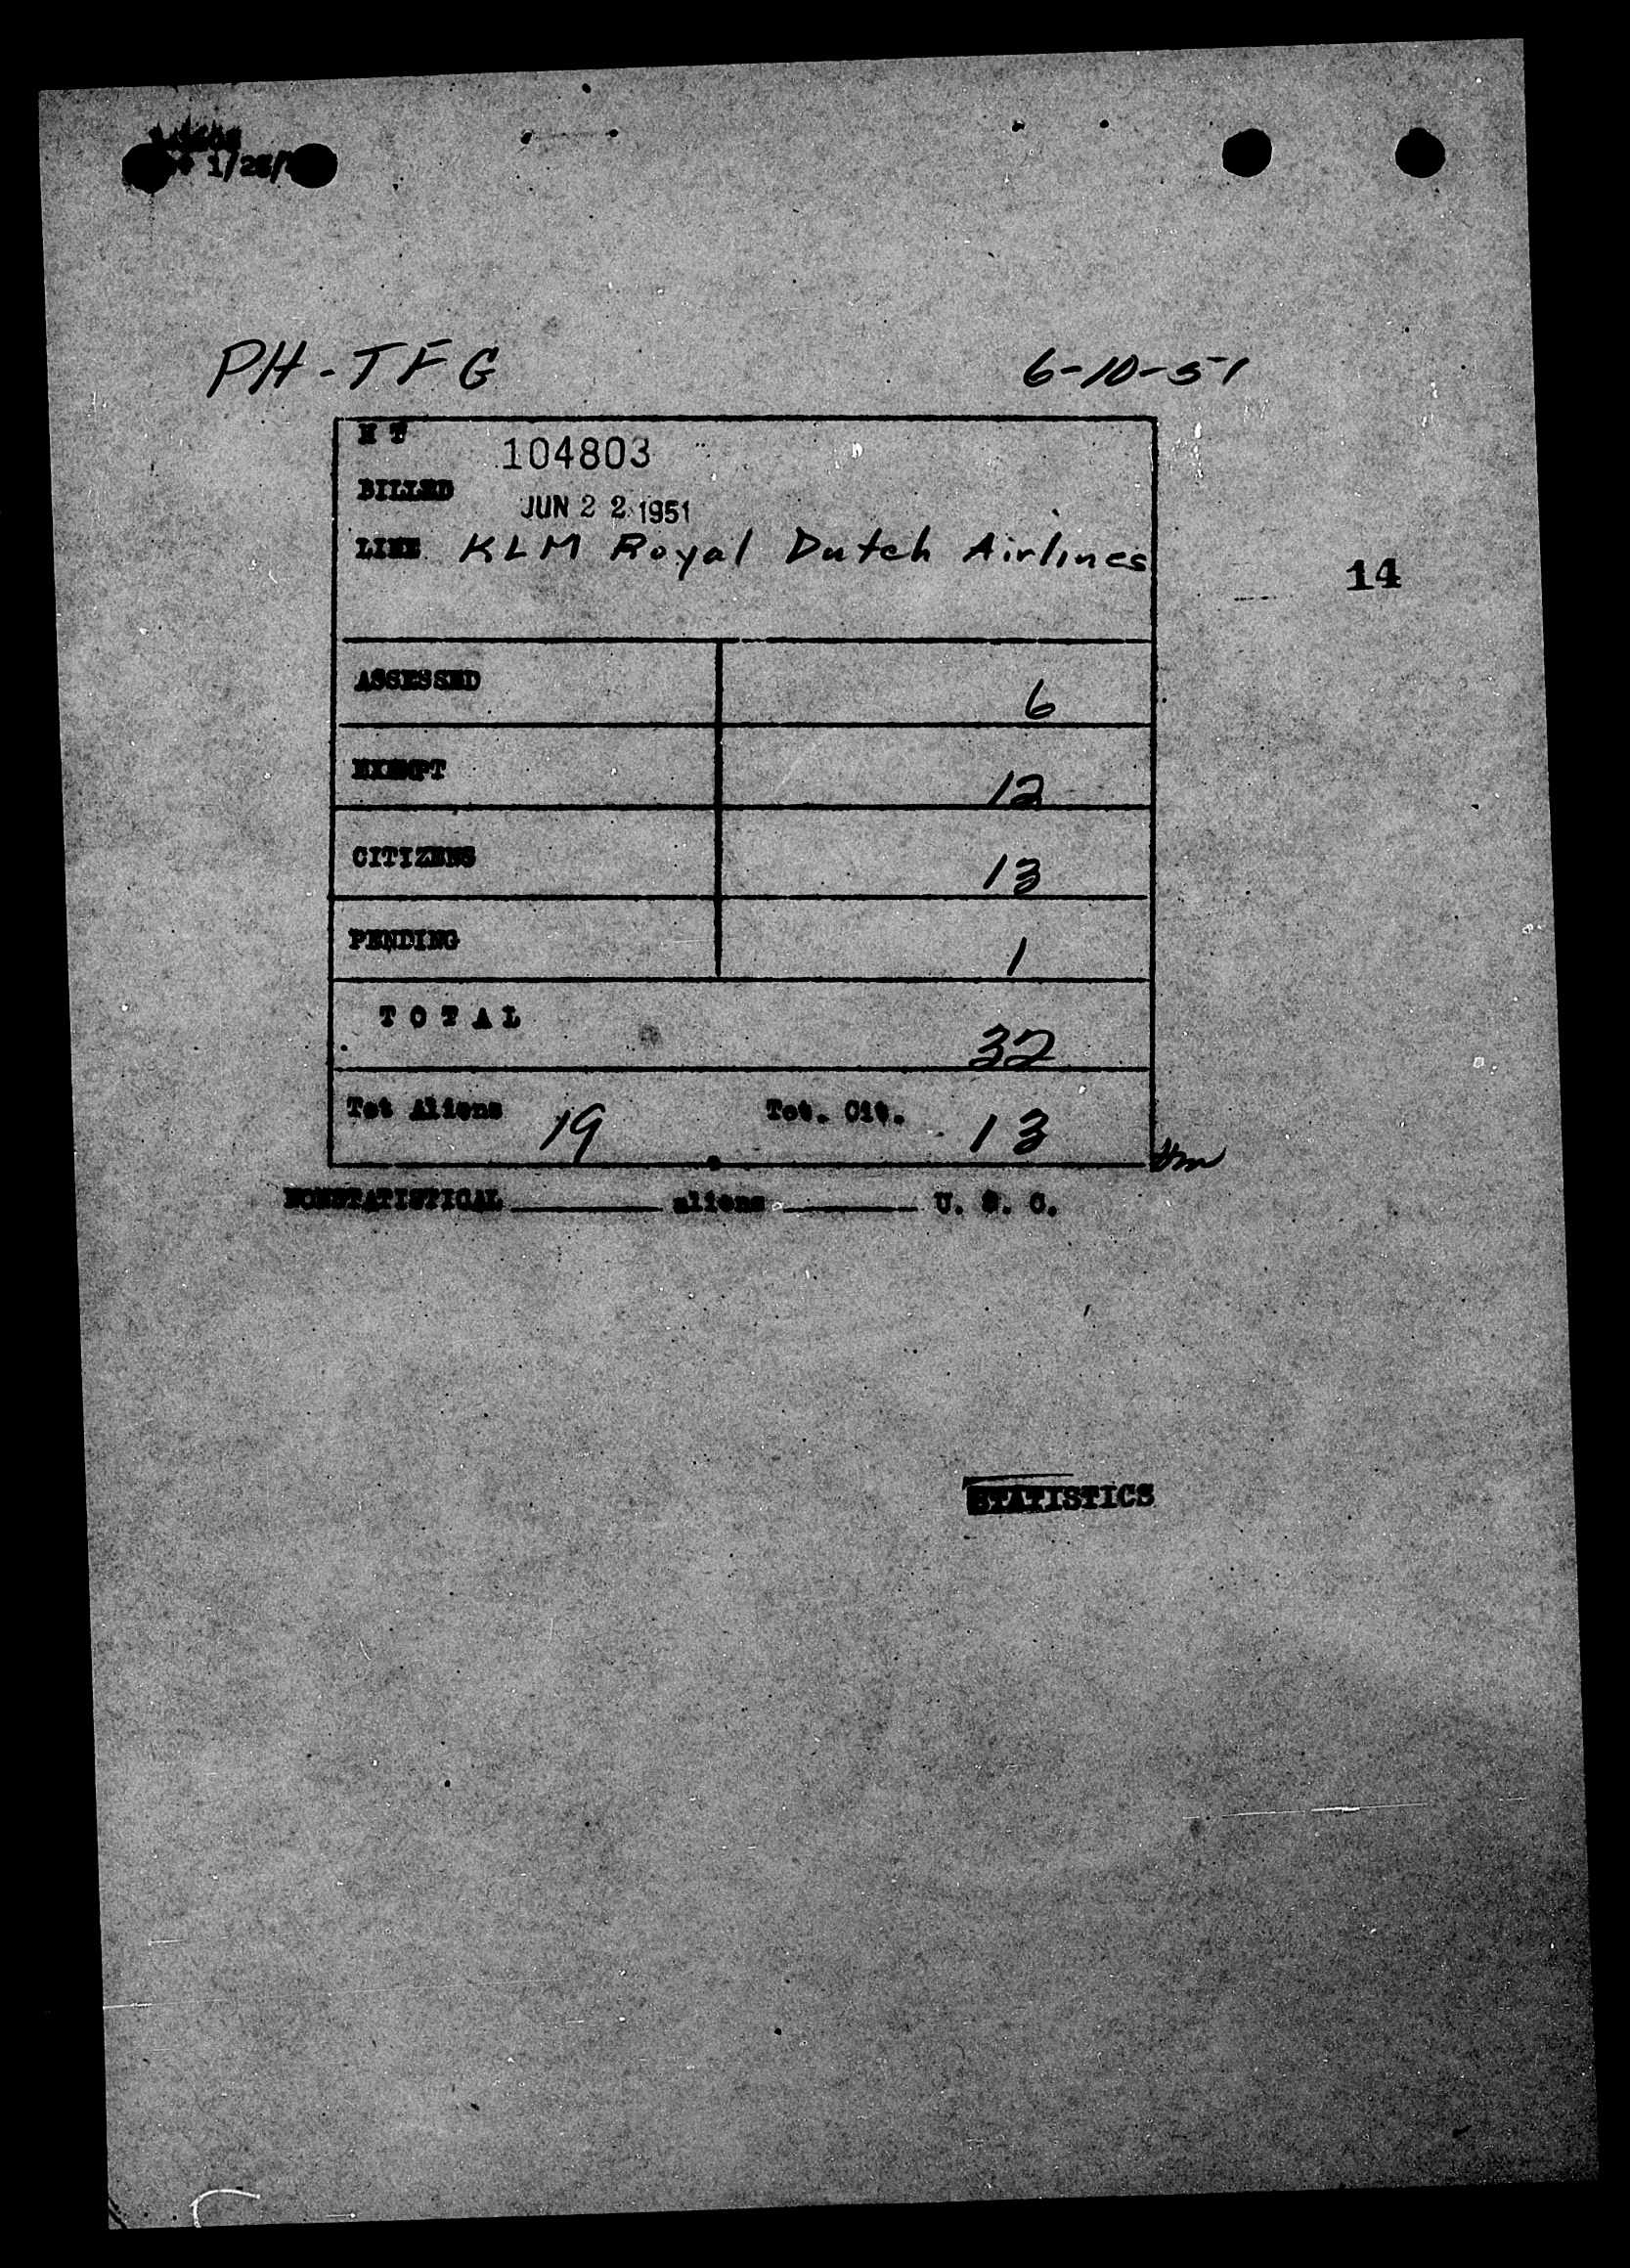 1/25/
PH-TFG 6-10-51
H T 104803
BILLED JUN 22 1951
LINE KLM Royal Dutch Airlines
14
ASSESSED 6
EXEMPT 12
CITIZENS 13
PENDING 1
TOTAL 32
Tot Aliens 19 Tot. Cit. 13
NONSTATISTICAL ______ aliens ______ U. S. C.
STATISTICS